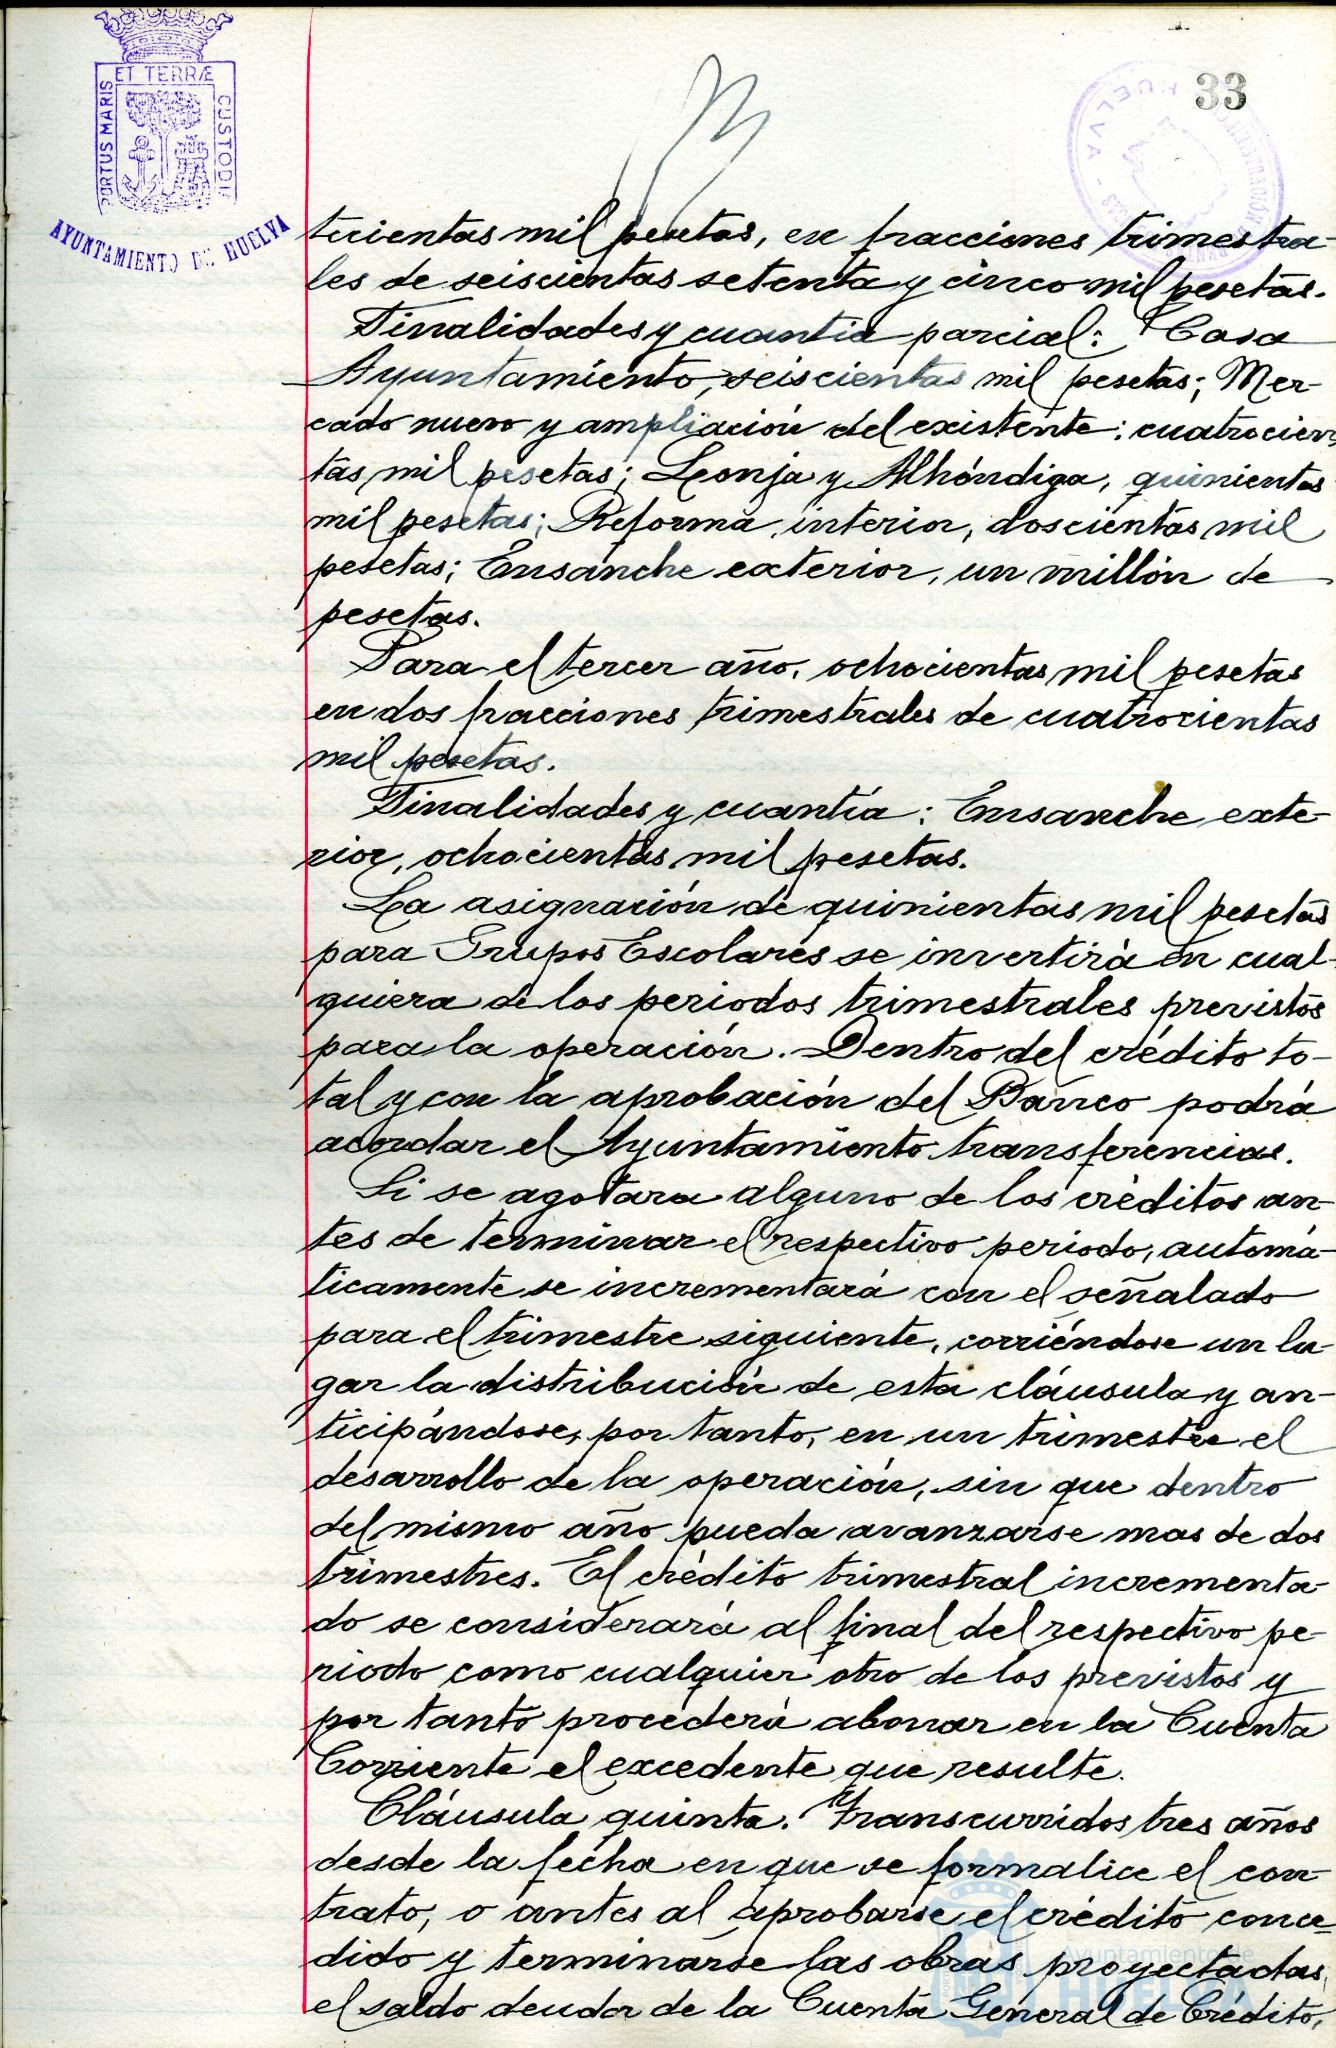 33
PORTUS MARIS
ET TERRÆ
CUSTODIA
AYUNTAMIENTO DE HUELVA
HUELVA
tecientas mil pesetas, en fracciones trimestra-
les de seiscientas setenta y cinco mil pesetas.
Finalidades y cuantia parcial: Casa
Ayuntamiento, seiscientas mil pesetas; Mer-
cado nuevo y ampliación del existente: cuatrocien-
tas mil pesetas; Lonja y Alhóndiga, quinientas
mil pesetas; Reforma interior, doscientas mil
pesetas; Ensanche exterior, un millón de
pesetas.
Para el tercer año, ochocientas mil pesetas
en dos fracciones trimestrales de cuatrocientas
mil pesetas.
Finalidades y cuantía: Ensanche exte-
rior, ochocientas mil pesetas.
La asignación de quinientas mil pesetas
para Grupos Escolares se invertirá en cual-
quiera de los periodos trimestrales previstos
para la operación. Dentro del crédito to-
tal y con la aprobación del Banco podrá
acordar el Ayuntamiento transferencias.
Si se agotara alguno de los créditos an-
tes de terminar el respectivo periodo, automá-
ticamente se incrementará con el señalado
para el trimestre siguiente, corriéndose un lu-
gar la distribución de esta cláusula y an-
ticipándose, por tanto, en un trimestre el
desarrollo de la operación, sin que dentro
del mismo año pueda avanzarse mas de dos
trimestres. El crédito trimestral incrementa-
do se considerará al final del respectivo pe-
riodo como cualquier otro de los previstos y
por tanto procederá abonar en la Cuenta
Corriente el excedente que resulte.
Cláusula quinta. Transcurridos tres años
desde la fecha en que se formalice el con-
trato, o antes al aprobarse el crédito conce-
dido y terminarse las obras proyectadas,
el saldo deudor de la Cuenta General de Crédito,
Ayuntamiento de
HUELVA